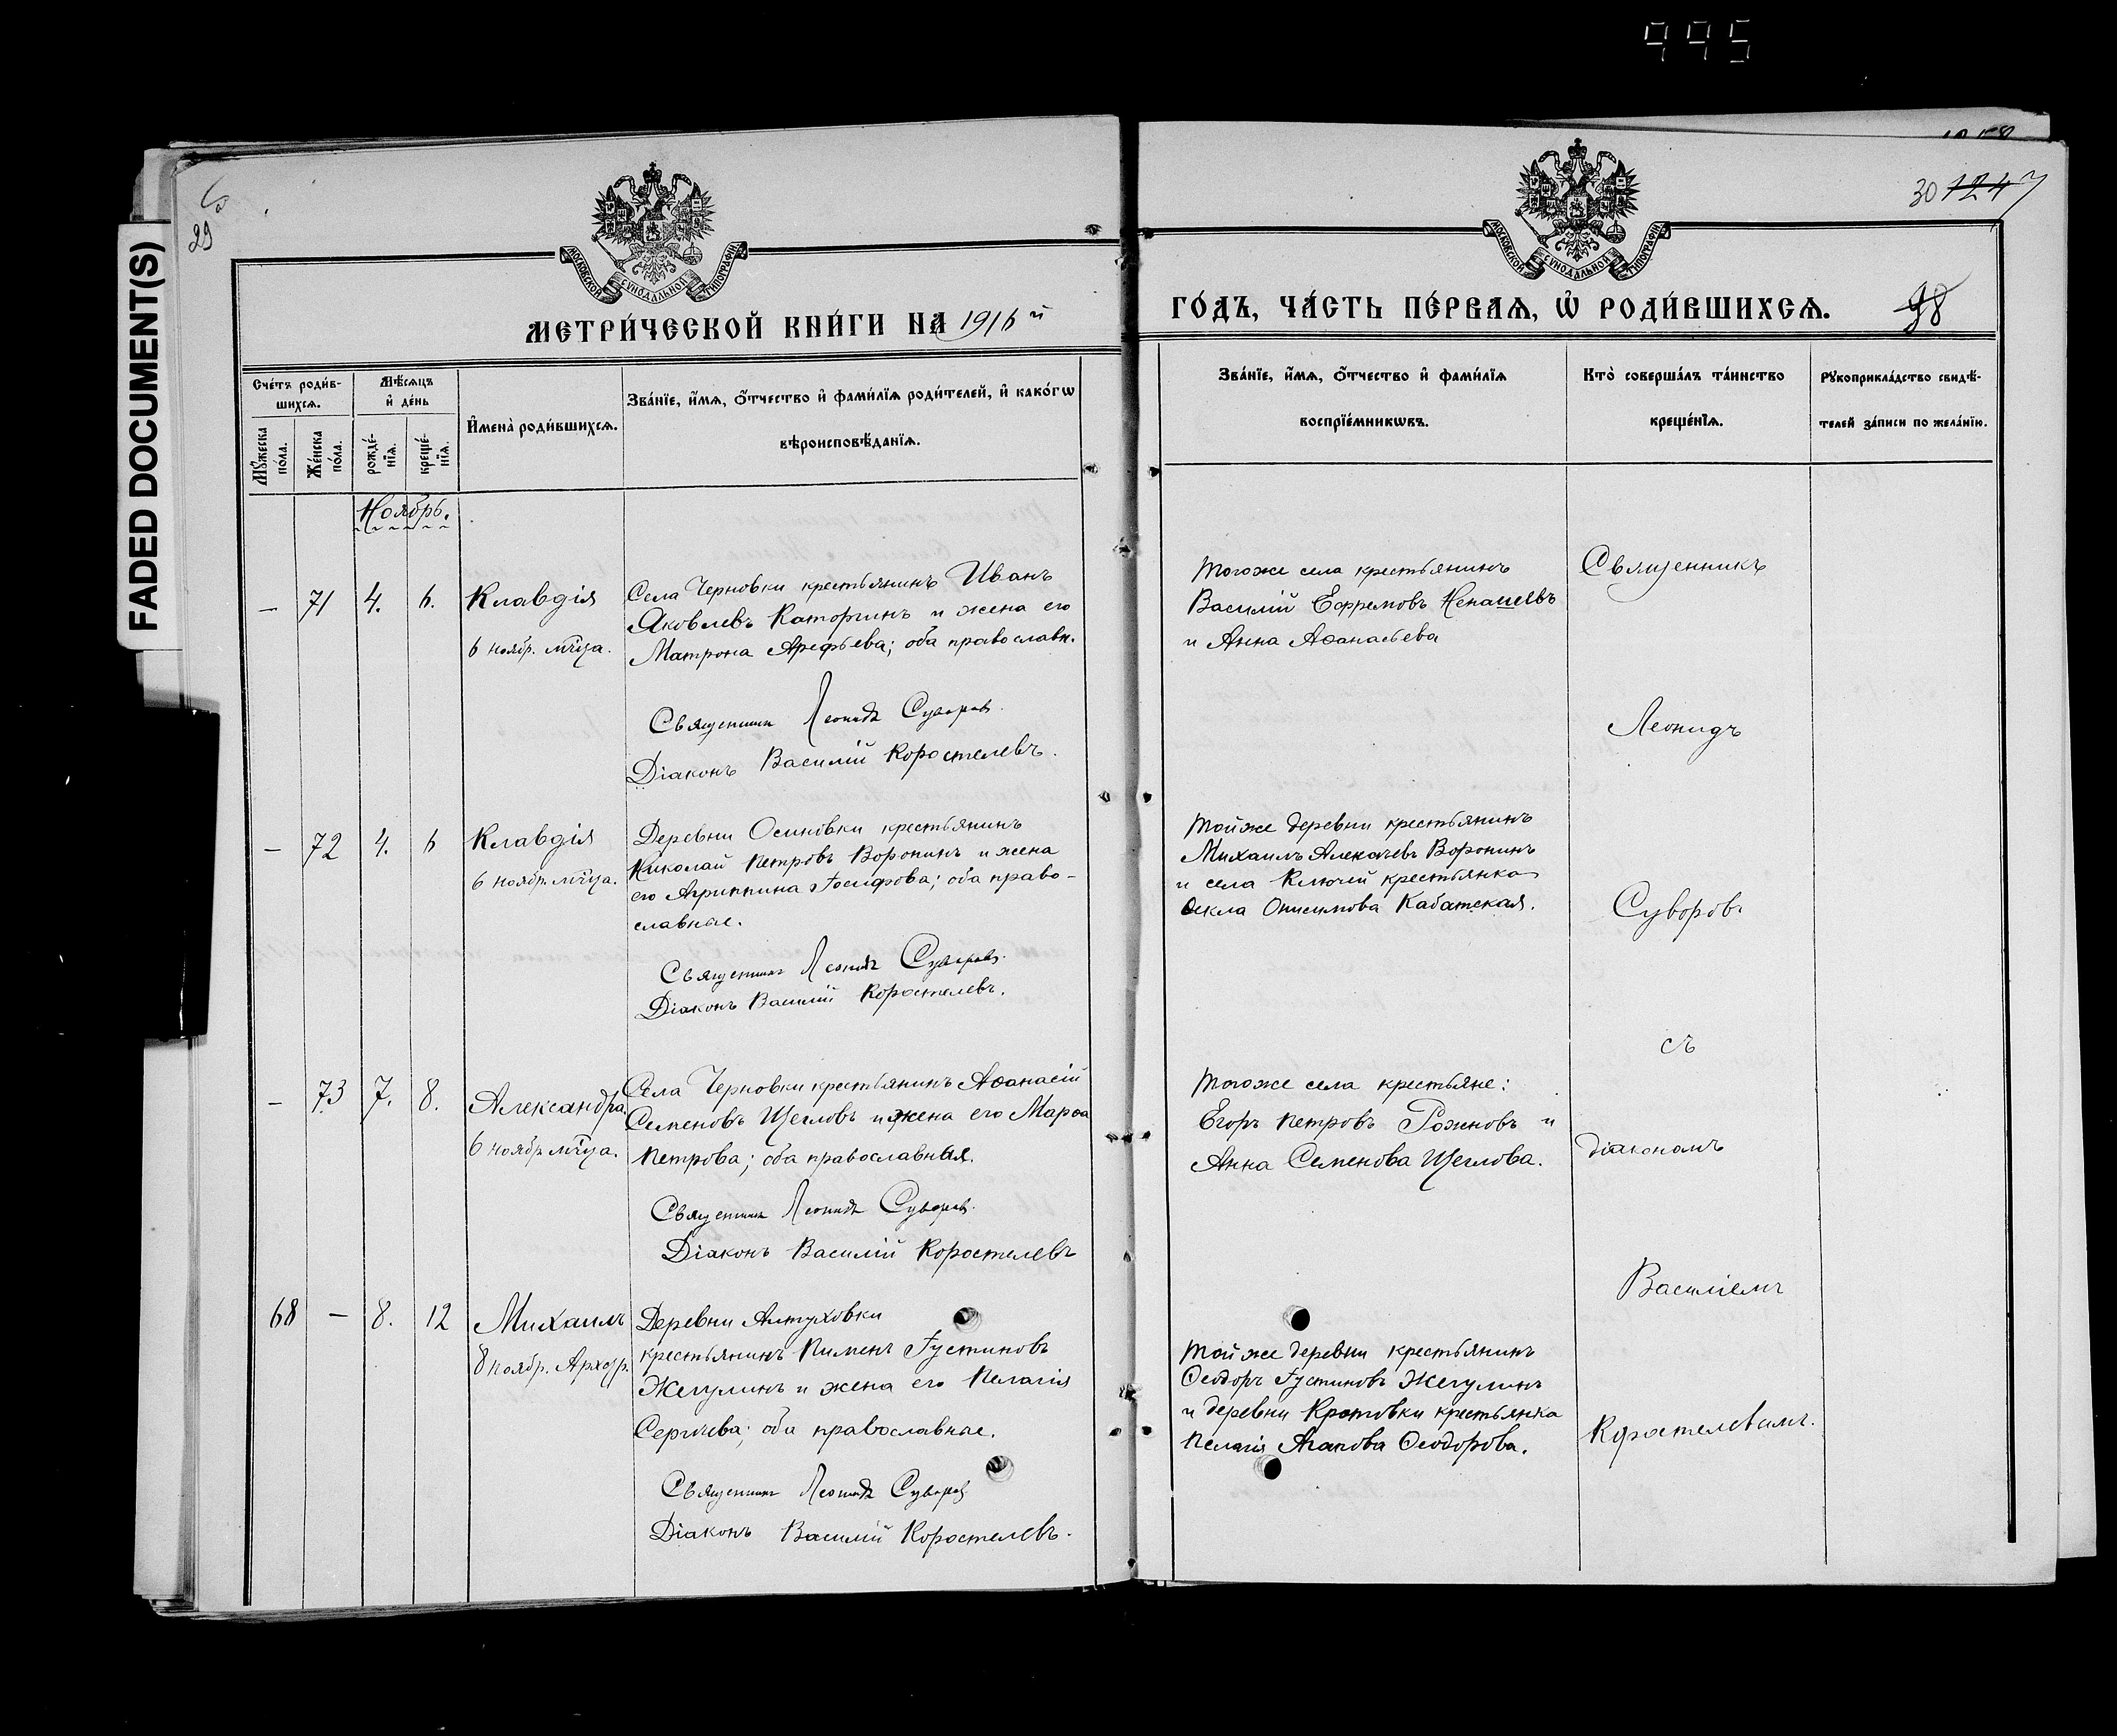 995
FADED DOCUMENT(S)
29
30 1247
МОСКОВСКОЙ СѴНОДАЛЬНОЙ ТИПОГРАФІИ
МОСКОВСКОЙ СѴНОДАЛЬНОЙ ТИПОГРАФІИ
МЕТРИ́ЧЕСКОЙ КНИ́ГИ НА 1916й
ГО́ДЪ, ЧА́СТЬ ПЕ́РВАѦ, Ѡ РОДИ́ВШИХСѦ.
98
Сче́тъ роди́в-
шихсѧ.
Мꙋ́жеска
по́ла.
Же́нска
по́ла.
Мѣ́сѧцъ
и҆ де́нь
рожде́-
нїѧ.
креще́-
нїѧ.
И҆мена̀ роди́вшихсѧ.
Зва́нїе, и҆́мѧ, ѻ҆́тчество и҆ фами́лїѧ роди́телей, и҆ како́гѡ
вѣроисповѣ́данїѧ.
Зва́нїе, и҆́мѧ, ѻ҆́тчество и҆ фами́лїѧ
воспрїе́мникѡвъ.
Кто̀ соверша́лъ та́инство
креще́нїѧ.
Рꙋкоприкла́дство свидѣ́-
телей за́писи по жела́нїю.
Ноябрь.
— 71 4. 6. Клавдія
6 ноябр. мч̃ца.
Села Черновки крестьянинъ Иванъ
Яковлевъ Каторгинъ и жена его
Матрона Арефьева; оба православн.
Священникъ Леонидъ Суворовъ.
Діаконъ Василій Коростелевъ.
Тогоже села крестьянинъ
Василій Ефремовъ Ненашевъ
и Анна Аѳанасьева
Священникъ
Леонидъ
— 72 4. 6 Клавдія
6 ноябр. мч̃ца.
Деревни Осиновки крестьянинъ
Николай Петровъ Воронинъ и жена
его Агриппина Іосифова; оба право-
славные.
Священникъ Леонидъ Суворовъ.
Діаконъ Василій Коростелевъ.
Тойже деревни крестьянинъ
Михаилъ Воронинъ
и села Ключей крестьянка
Ѳекла Онисимова Кабатская.
Суворовъ
съ
— 73 7. 8. Александра.
6 ноябр мч̃ца.
Села Черновки крестьянинъ Аѳанасій
Семеновъ Щегловъ и жена его Марѳа
Петрова; оба православныя.
Священникъ Леонидъ Суворовъ.
Діаконъ Василій Коростелевъ
Тогоже села крестьяне:
Егоръ Петровъ Рожновъ и
Анна Семенова Щеглова.
діакономъ
Василіемъ
68 — 8. 12 Михаилъ
8 ноябр. Архстр.
Деревни Алтуховки
крестьянинъ Пименъ Іустиновъ
Жегулинъ и жена его Пелагія
Сергіева; оба православные.
Священникъ Леонидъ Суворовъ
Діаконъ Василій Коростелевъ.
Тойже деревни крестьянинъ
Ѳеодоръ Іустиновъ Жегулинъ
и деревни Кротовки крестьянка
Пелагія Агапова Ѳеодорова.
Коростелевымъ.